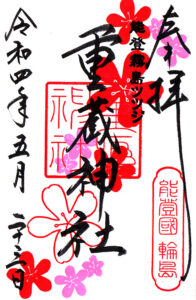 奉拝
能登霧島ツツジ
重蔵神社
能登國 輪島
令和四年五月二十三日